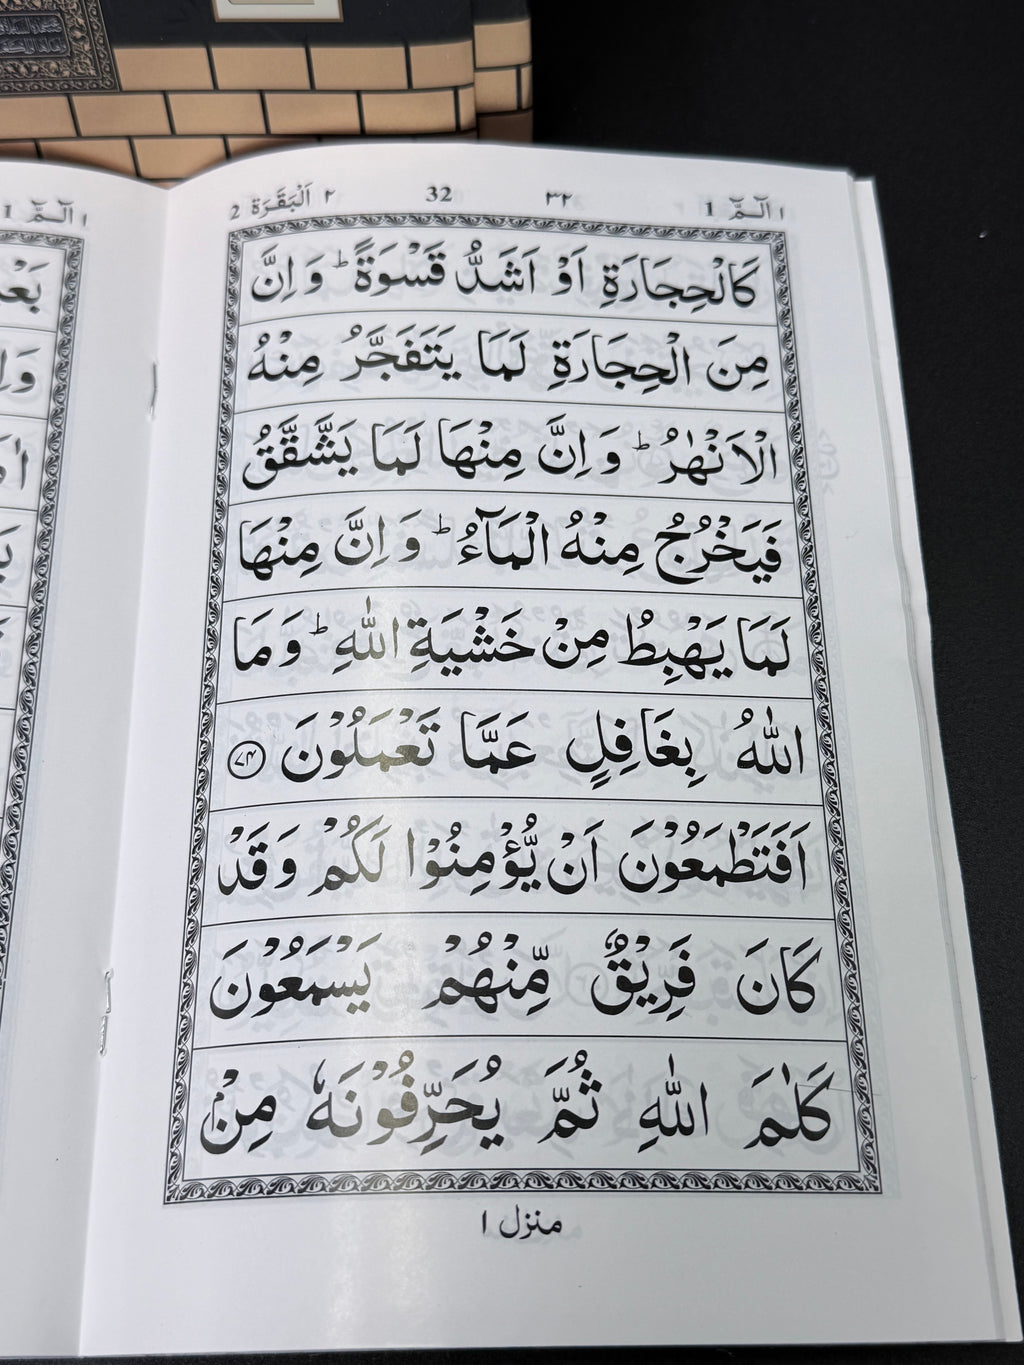 ١ الٓمّٓ 1 ٣٢ 32 ٢ اَلْبَقَرَة 2
كَالْحِجَارَةِ اَوْ اَشَدُّ قَسْوَةً ؕ وَ اِنَّ
مِنَ الْحِجَارَةِ لَمَا يَتَفَجَّرُ مِنْهُ
الْاَنْهٰرُ ؕ وَ اِنَّ مِنْهَا لَمَا يَشَّقَّقُ
فَيَخْرُجُ مِنْهُ الْمَآءُ ؕ وَ اِنَّ مِنْهَا
لَمَا يَهْبِطُ مِنْ خَشْيَةِ اللّٰهِ ؕ وَ مَا
اللّٰهُ بِغَافِلٍ عَمَّا تَعْمَلُوْنَ ﴿٧٤﴾
اَفَتَطْمَعُوْنَ اَنْ يُّؤْمِنُوْا لَكُمْ وَ قَدْ
كَانَ فَرِيْقٌ مِّنْهُمْ يَسْمَعُوْنَ
كَلٰمَ اللّٰهِ ثُمَّ يُحَرِّفُوْنَهٗ مِنْۢ
منزل ١
١ الٓمّٓ 1
بَعْ
وَاِ